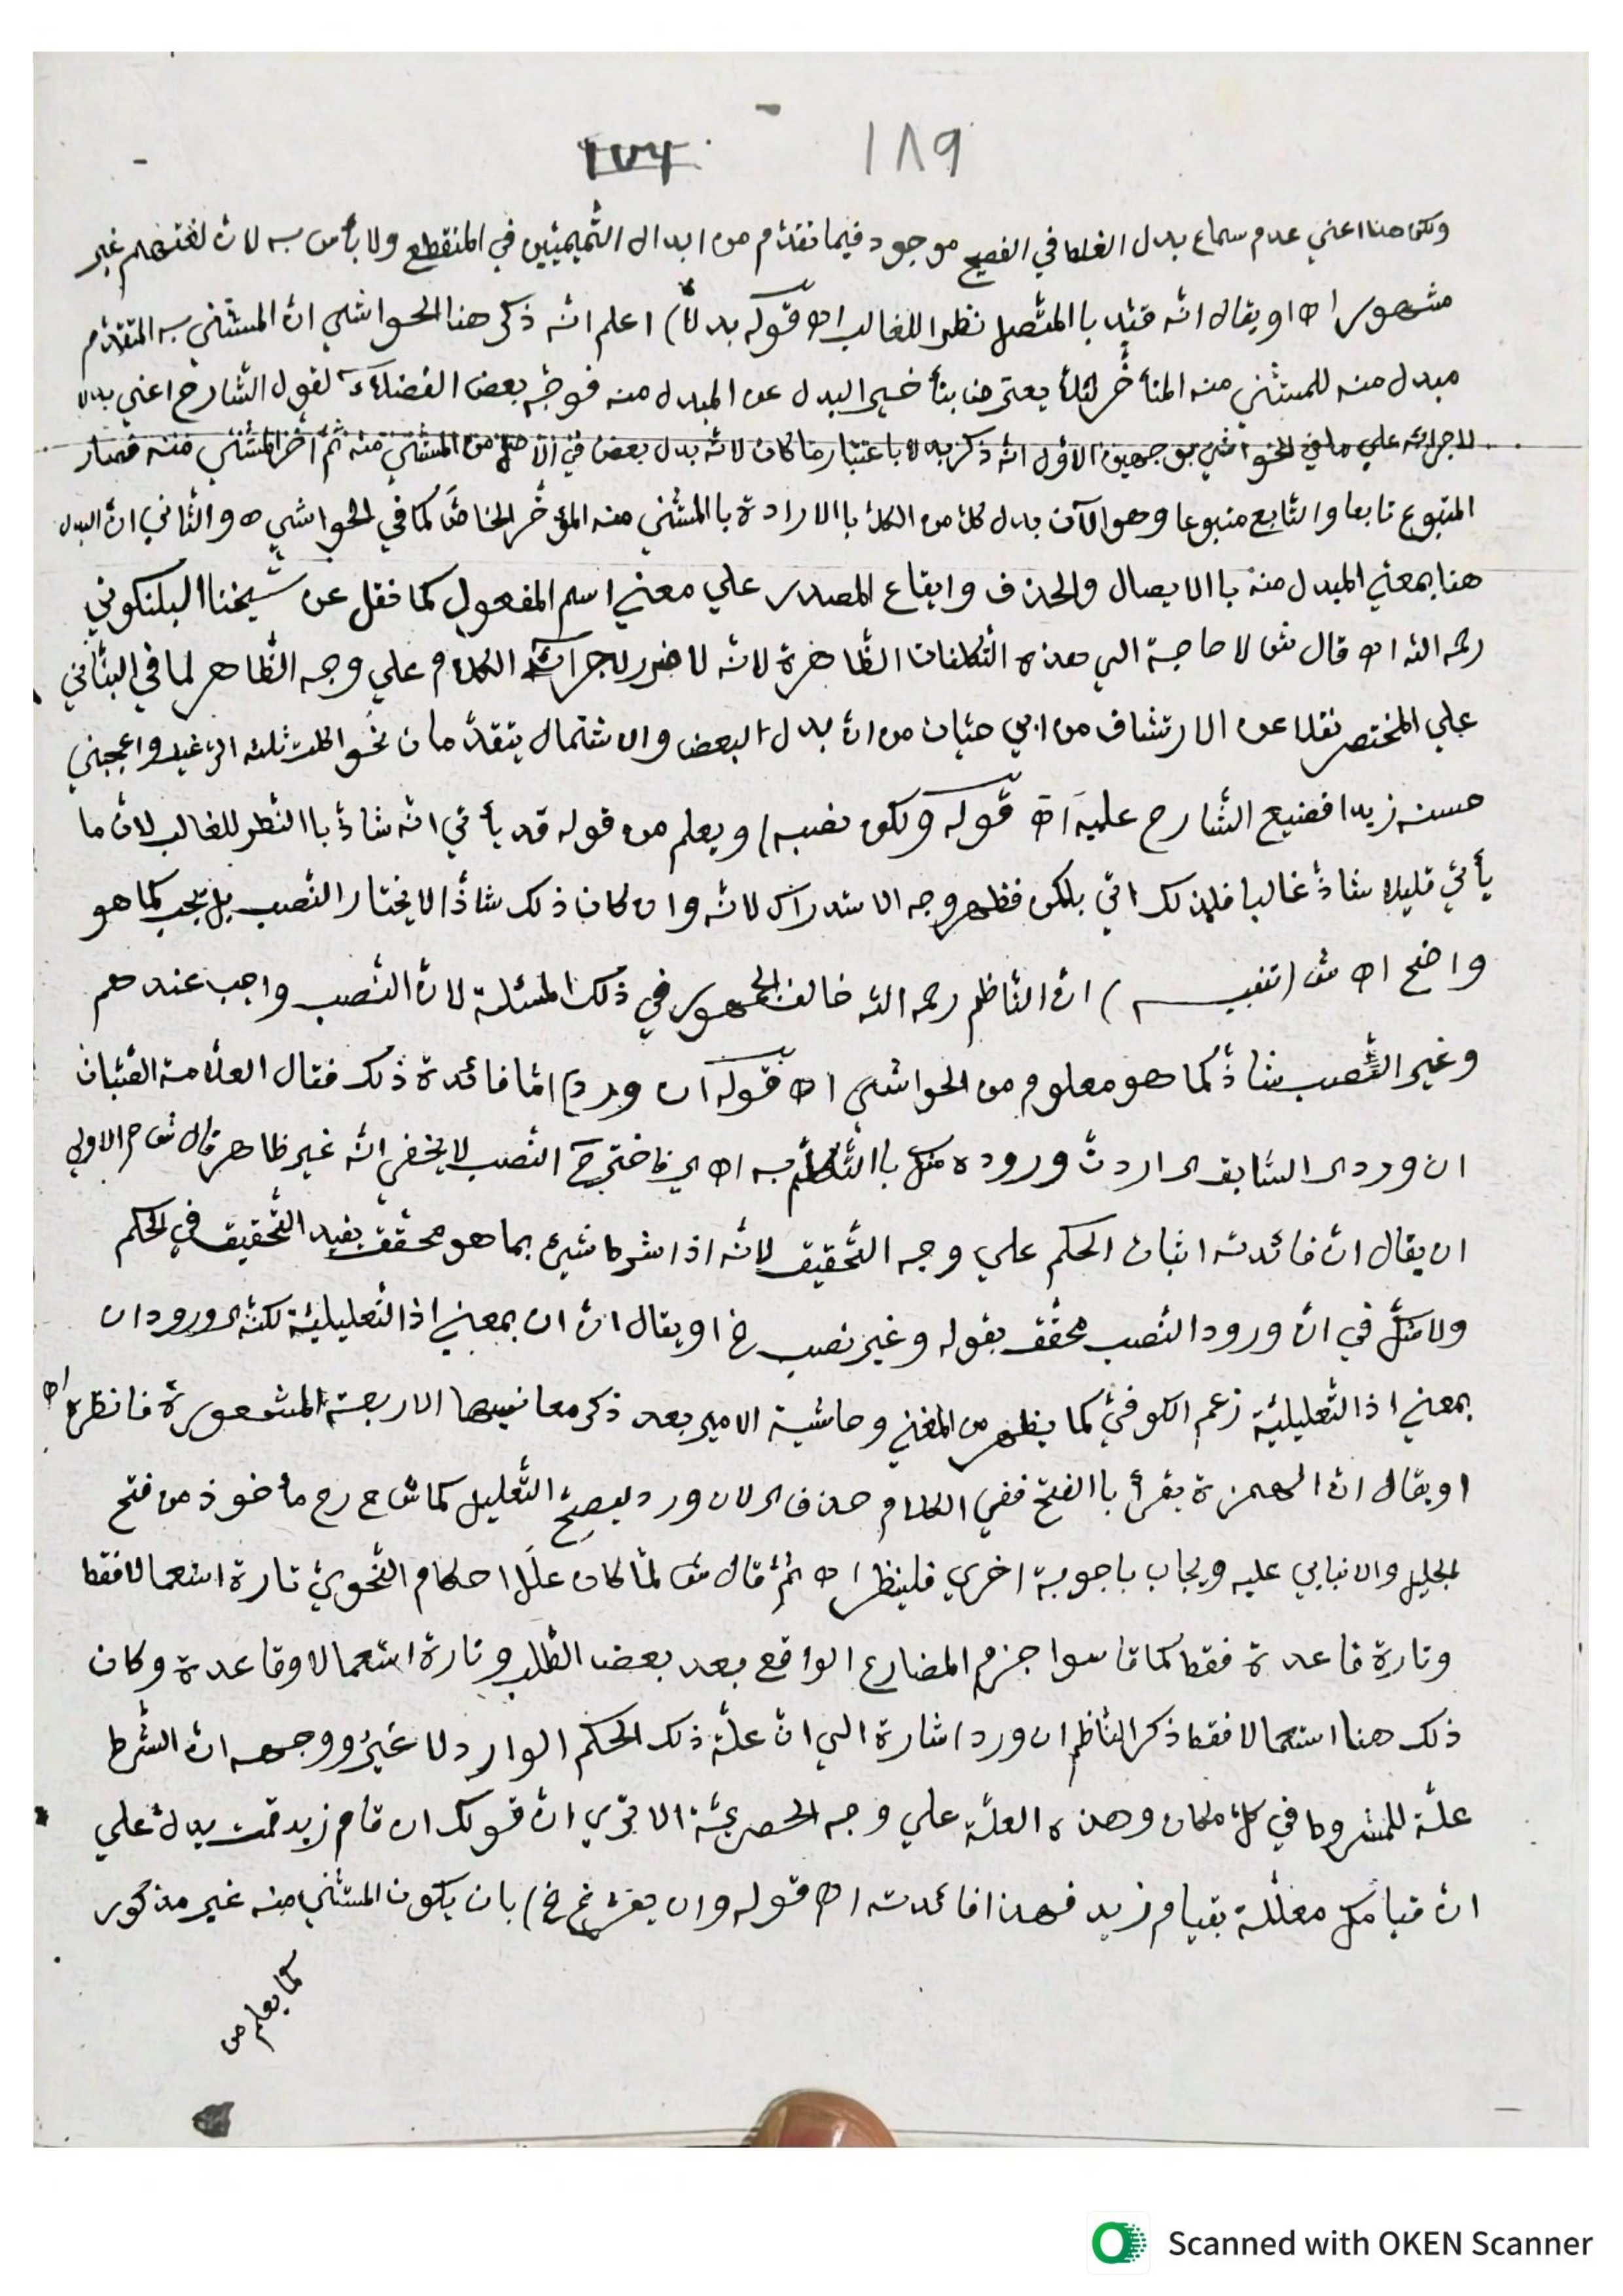 ١٨٩
١٧٤
ولكن هنا اعني عدم سماع بدل الغلط في الفصيح موجود فيما تقدّم من ابدال التّميميّين في المنقطع ولا بأس به لانّ لغتهم غير
مشهور اه او يقال انّه قيّد باالمتّصل نظرا للغالب اه قوله بدلاً) اعلم انّه ذكر هنا الحواشي انّ المستثني به المتقدّم
مبدل منه للمستثني منه المتأخّر لئلّا يعترض بتأخير البدل عن المبدل منه فوجّه بعض الفضلاء لقول الشّارح اعني بدلا
لاجرائه علي ما في الحواشي بوجهين الاوّل انّه ذكر بدلا باعتبار ما كان لانّه بدل بعض في الاصل من المستثني منه ثمّ اخّر المستثني منه فصار
المتبوع تابعا والتّابع متبوعا وهو الآن بدل كلّ من الكلّ باالارادة باالمستثني منه المؤخّر الخاصّ كما في الحواشي ه والثّاني انّ البدل
هنا بمعني المبدل منه باالايصال والحذف وايقاع المصدر علي معني اسم المفعول كما نقل عن شيخنا البلنكوني
رحمه اللّه اه قال ش لا حاجة الي هذه التّكلفات الظّاهرة لانّه لا ضرر لاجراء الكلام علي وجه الظّاهر لما في البنّاني
علي المختصر نقلا عن الارتشاف من ابي حيّان من انّ بدل البعض والاشتمال يتقدّمان نحو اكلت ثلثه الرّغيف واعجبني
حسنه زيد فصنيع الشّارح عليه اه قوله ولكن نصبه) ويعلم من قوله قد يأتي انّه شاذّ باالنّظر للغالب لانّ ما
يأتي قليلا شاذّ غالبا فلذلك اتي بلكن فظهر وجه الاستدراك لانّه وان كان ذلك شاذّا لا يختار النّصب بل يجب كما هو
واضح اه ش (تنبيـــه) انّ النّاظم رحمه اللّه خالف الجمهور في ذلك المسئلة لانّ النّصب واجب عندهم
وغير النّصب شاذّ كما هو معلوم من الحواشي اه قوله ان ورد) امّا فائدة ذلك فقال العلّامة الصّبّان
ان ورد اي السّابق اي اردت وروده منك باالتّكلّم به اه اي فاختر ح النّصب لا يخفي انّه غير ظاهر قال ش ح الاولي
ان يقال انّ فائدته اثبات الحكم علي وجه التّحقيق لانّه اذا شرط شيئ بما هو محقّق يفيد التّحقيق في الحكم
ولا شكّ في انّ ورود النّصب محقّق بقوله وغير نصب خ او يقال انّ ان بمعني اذ التّعليليّة لكنّه ورود ان
بمعني اذ التّعليليّة زعم الكوفيّ كما يظهر من المغني وحاشية الامير بعد ذكر معانيها الاربعة المشهورة فانظره اه
او يقال انّ الهمزة يقرأ باالفتح ففي الكلام حذف اي لان ورد ليصحّ التّعليل كما ش ح رح مأخوذ من فتح
الجليل والانبابي عليه ويجاب باجوبة اخري فلينظر اه ثمّ قال ش لمّا كان علل احكام النّحويّ تارة استعمالا فقط
وتارة قاعدة فقط كما قاسوا جزم المضارع الواقع بعد بعض الطّلب وتارة استعمالا وقاعدة وكان
ذلك هنا استعمالا فقط ذكر النّاظم ان ورد اشارة الي انّ علّة ذلك الحكم الوارد لا غير ووجهه انّ الشّرط
علّة للمشروط في كلّ مكان وهذه العلّة علي وجه الحصريّة الا تري انّ قولك ان قام زيد قمت يدلّ علي
انّ قيامك معلّلة بقيام زيد فهذا فائدته اه قوله وان يفرّغ خ) بان يكون المستثني منه غير مذكور
كما يعلم من
Scanned with OKEN Scanner